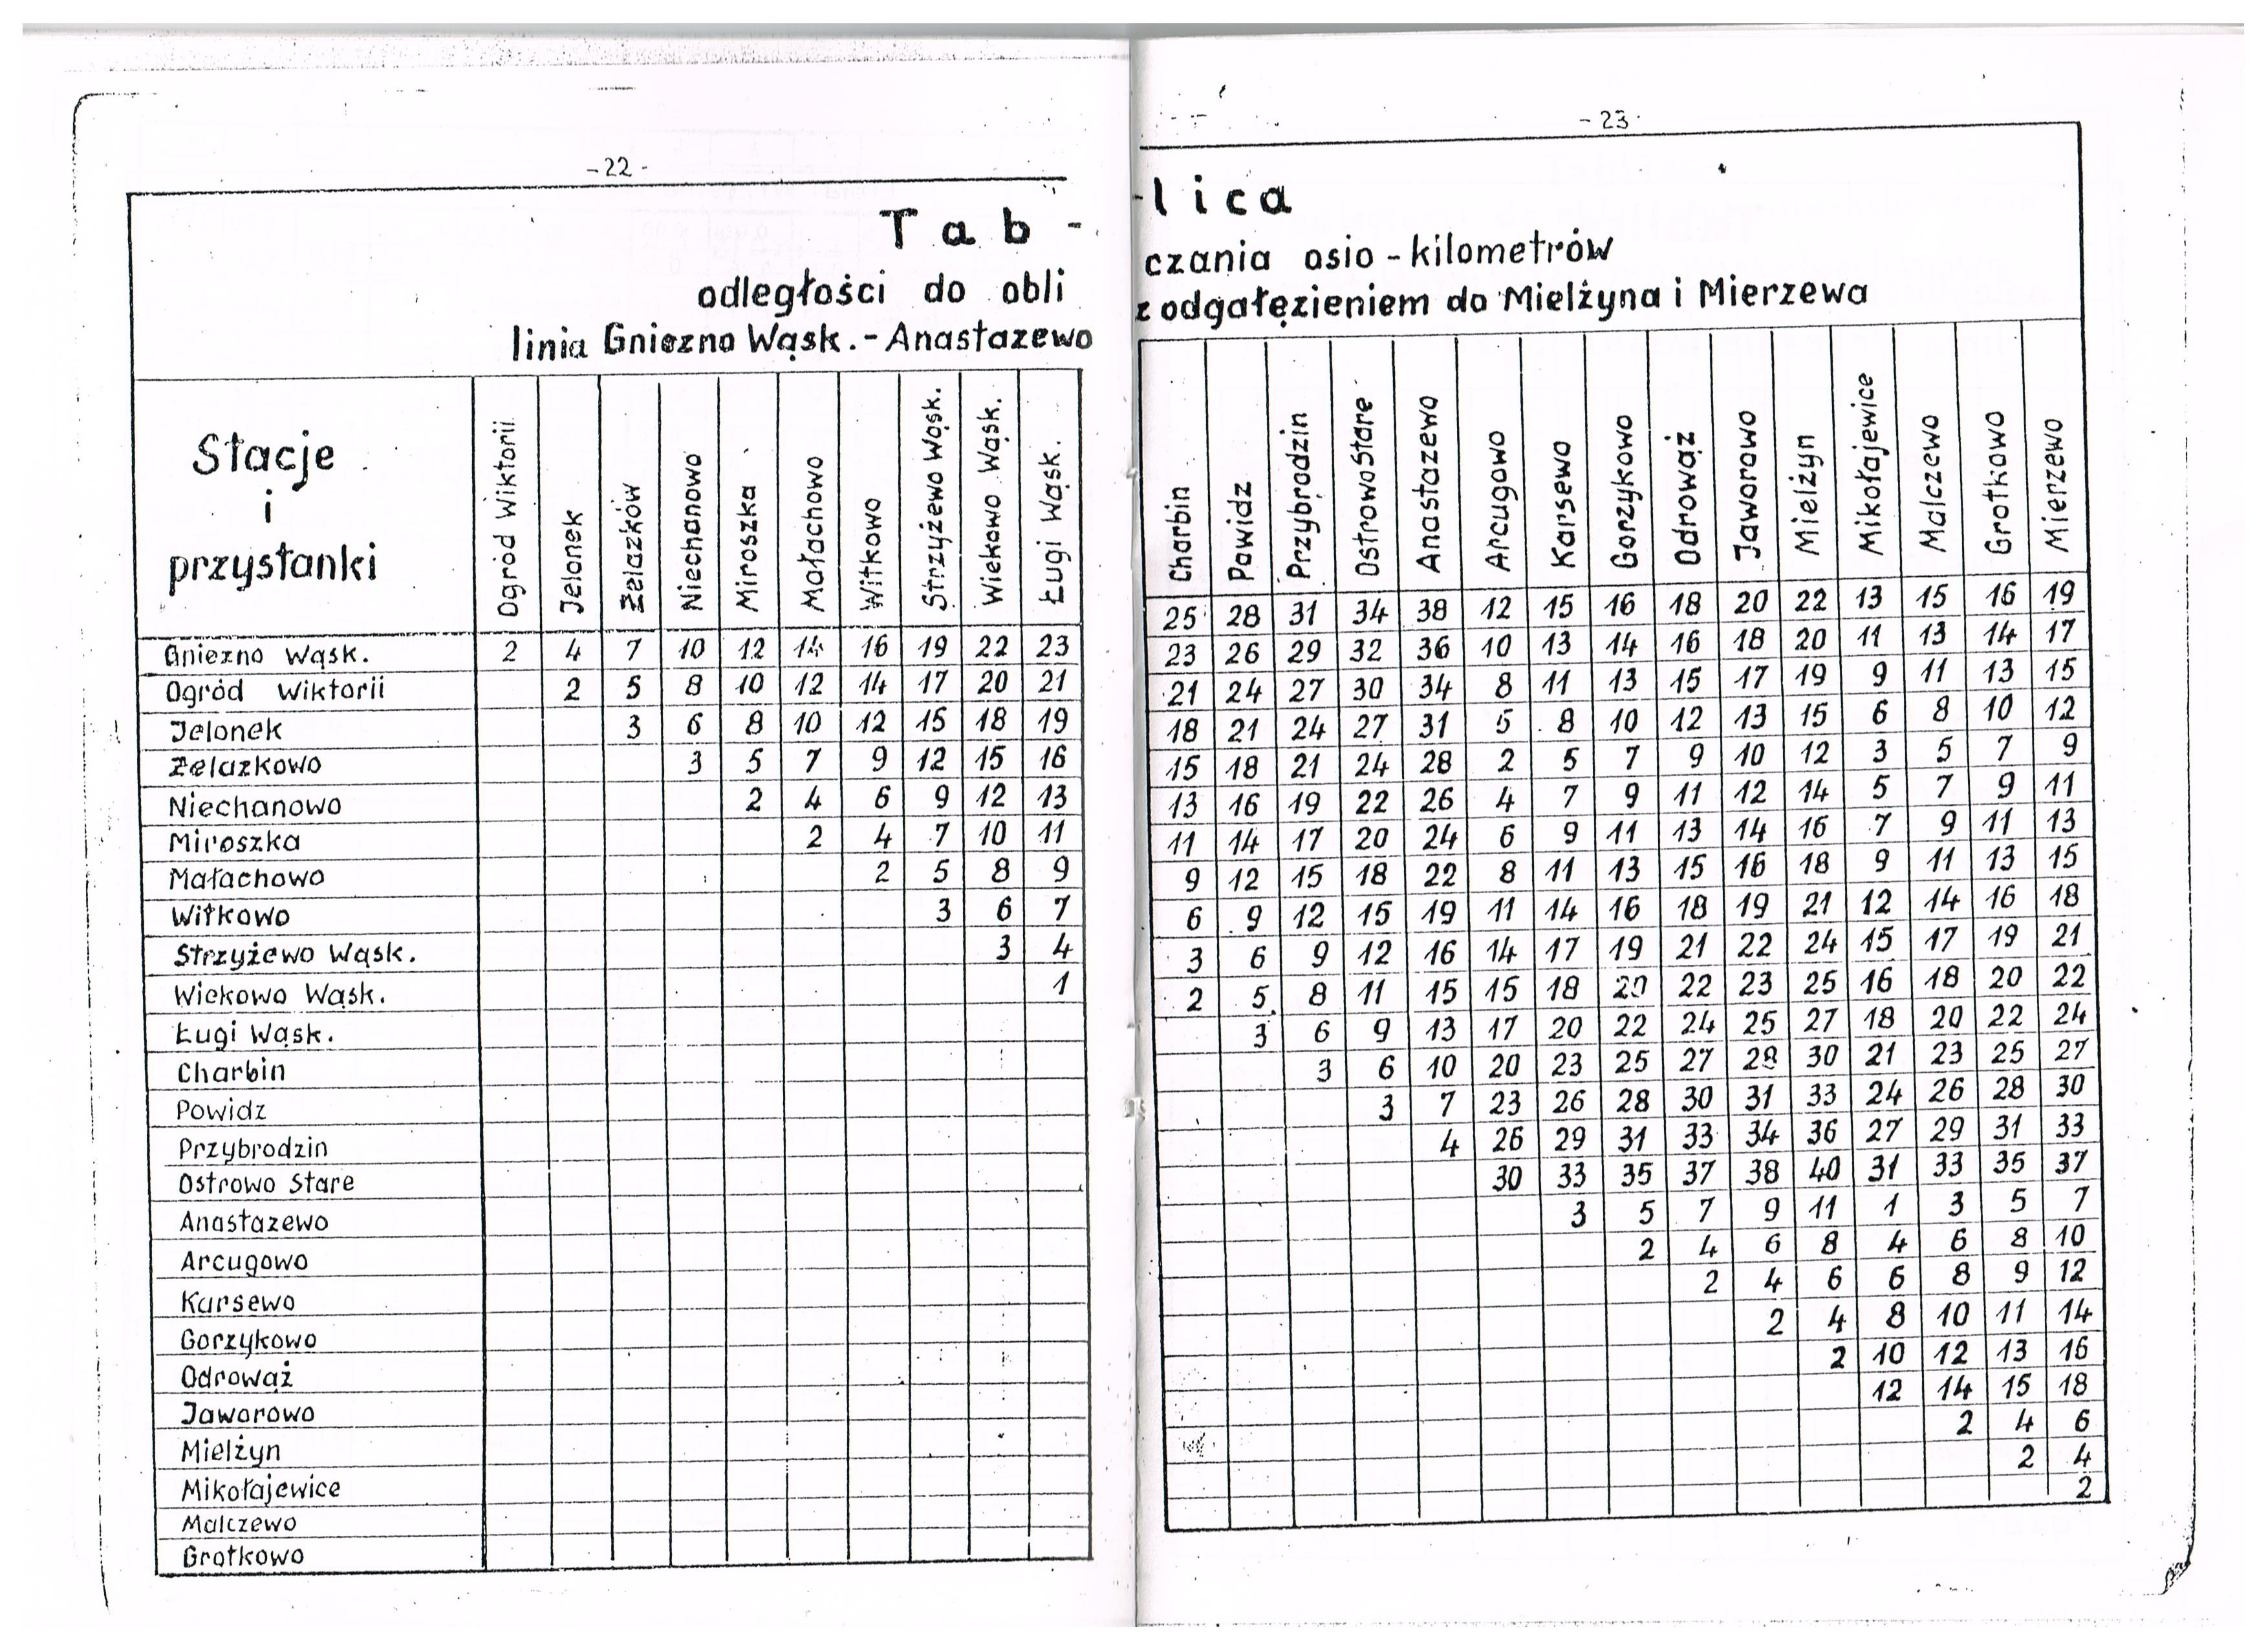 - 22 -
Tab -
odległości do obli
linia Gniezno Wąsk. - Anastazewo
Stacje
i
przystanki
Ogród Wiktorii
Jelonek
Żelazków
Niechanowo
Miroszka
Małachowo
Witkowo
Strzyżewo Wąsk.
Wiekowo Wąsk.
Ługi Wąsk.
Gniezno Wąsk. 2 4 7 10 12 14 16 19 22 23
Ogród Wiktorii 2 5 8 10 12 14 17 20 21
Jelonek 3 6 8 10 12 15 18 19
Żelazkowo 3 5 7 9 12 15 16
Niechanowo 2 4 6 9 12 13
Miroszka 2 4 7 10 11
Małachowo 2 5 8 9
Witkowo 3 6 7
Strzyżewo Wąsk. 3 4
Wiekowo Wąsk. 1
Ługi Wąsk.
Charbin
Powidz
Przybrodzin
Ostrowo Stare
Anastazewo
Arcugowo
Karsewo
Gorzykowo
Odrowąż
Jaworowo
Mielżyn
Mikołajewice
Malczewo
Grotkowo
- 23 -
- lica
czania osio - kilometrów
z odgałęzieniem do Mielżyna i Mierzewa
Charbin
Powidz
Przybrodzin
Ostrowo Stare
Anastazewo
Arcugowo
Karsewo
Gorzykowo
Odrowąż
Jaworowo
Mielżyn
Mikołajewice
Malczewo
Grotkowo
Mierzewo
25 28 31 34 38 12 15 16 18 20 22 13 15 16 19
23 26 29 32 36 10 13 14 16 18 20 11 13 14 17
21 24 27 30 34 8 11 13 15 17 19 9 11 13 15
18 21 24 27 31 5 8 10 12 13 15 6 8 10 12
15 18 21 24 28 2 5 7 9 10 12 3 5 7 9
13 16 19 22 26 4 7 9 11 12 14 5 7 9 11
11 14 17 20 24 6 9 11 13 14 16 7 9 11 13
9 12 15 18 22 8 11 13 15 16 18 9 11 13 15
6 9 12 15 19 11 14 16 18 19 21 12 14 16 18
3 6 9 12 16 14 17 19 21 22 24 15 17 19 21
2 5 8 11 15 15 18 20 22 23 25 16 18 20 22
3 6 9 13 17 20 22 24 25 27 18 20 22 24
3 6 10 20 23 25 27 28 30 21 23 25 27
3 7 23 26 28 30 31 33 24 26 28 30
4 26 29 31 33 34 36 27 29 31 33
30 33 35 37 38 40 31 33 35 37
3 5 7 9 11 1 3 5 7
2 4 6 8 4 6 8 10
2 4 6 6 8 9 12
2 4 8 10 11 14
2 10 12 13 16
12 14 15 18
2 4 6
2 4
2